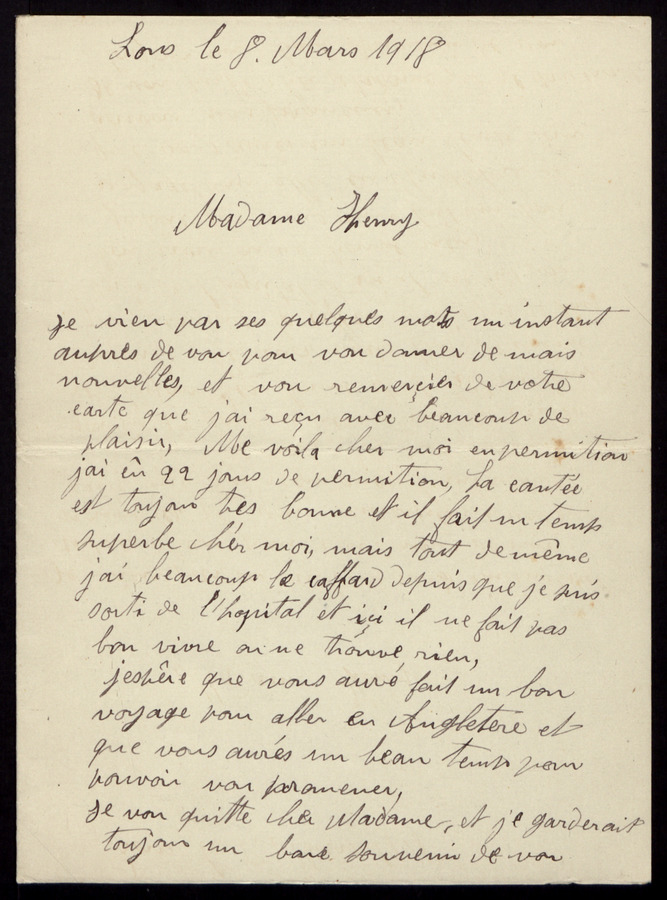 Lons le 8. Mars 1918
Madame Henry
Je vien par ses quelques mots un instant
auprès de vou pour vou donner de mais
nouvelles, et vou remerçier de votre
carte que j'ai reçu avec beaucoup de
plaisir, Me voila cher moi en permition
j'ai êu 22 jours de permition, La cantée
est toujour tres bonne et il fait un temps
superbe chér moi, mais tout de même
j'ai beaucoup le caffard depuis que je suis
sorti de l'hopital et içi il ne fait pas
bon vivre on ne trouve rien,
j'espère que vous auré fait un bon
voyage pour aller en Angletère et
que vous aurés un beau temps pour
pouvoir vou promener,
Je vou quitte cher Madame, et je garderait
toujour un bon souvenir de vou